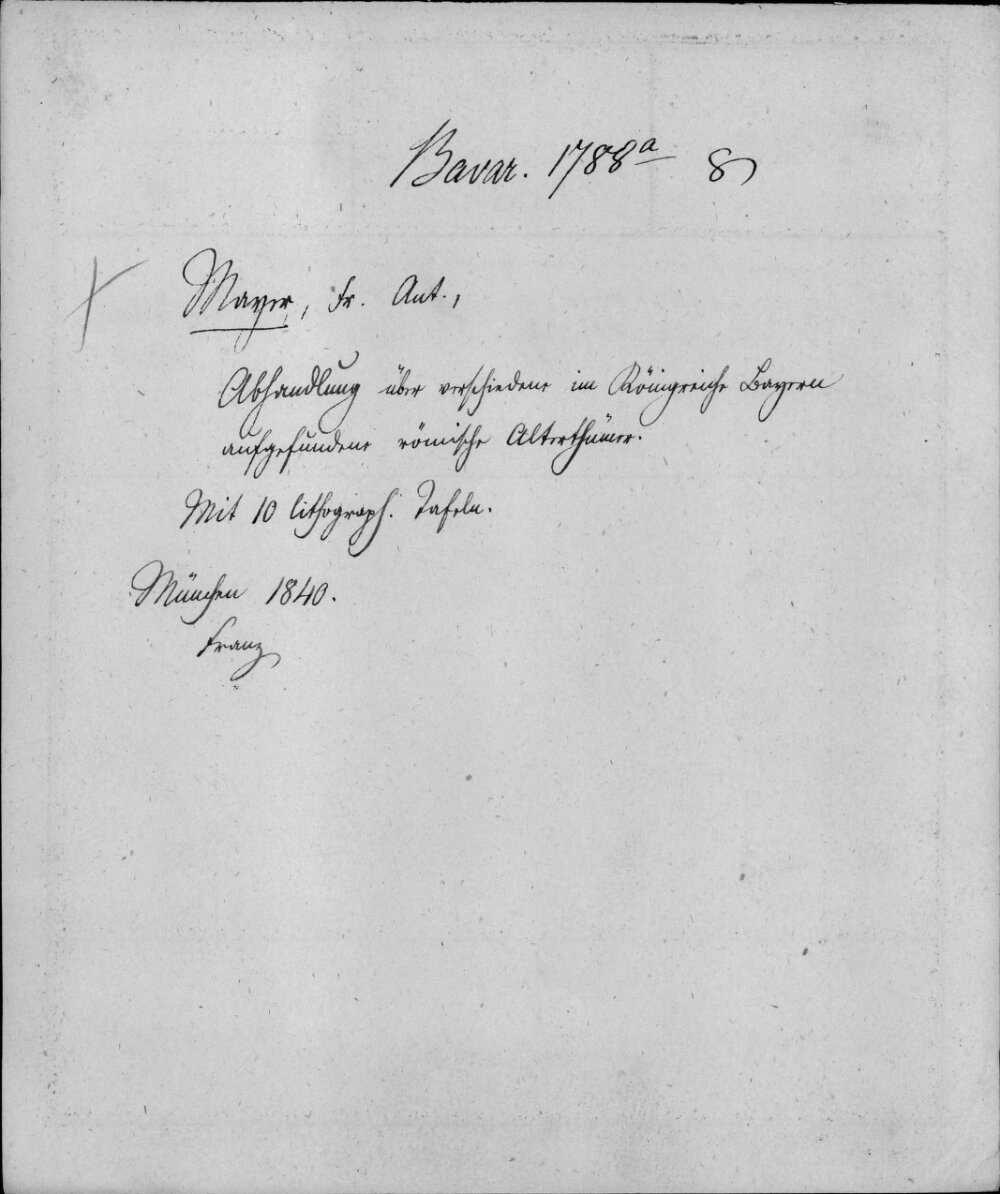 Bavar. 1788ª 8°
Mayer, Fr. Ant.,
Abhandlung über verschiedene im Königreiche Bayern
aufgefundene römische Alterthümer.
Mit 10 lithograph. Tafeln.
München 1840.
Franz